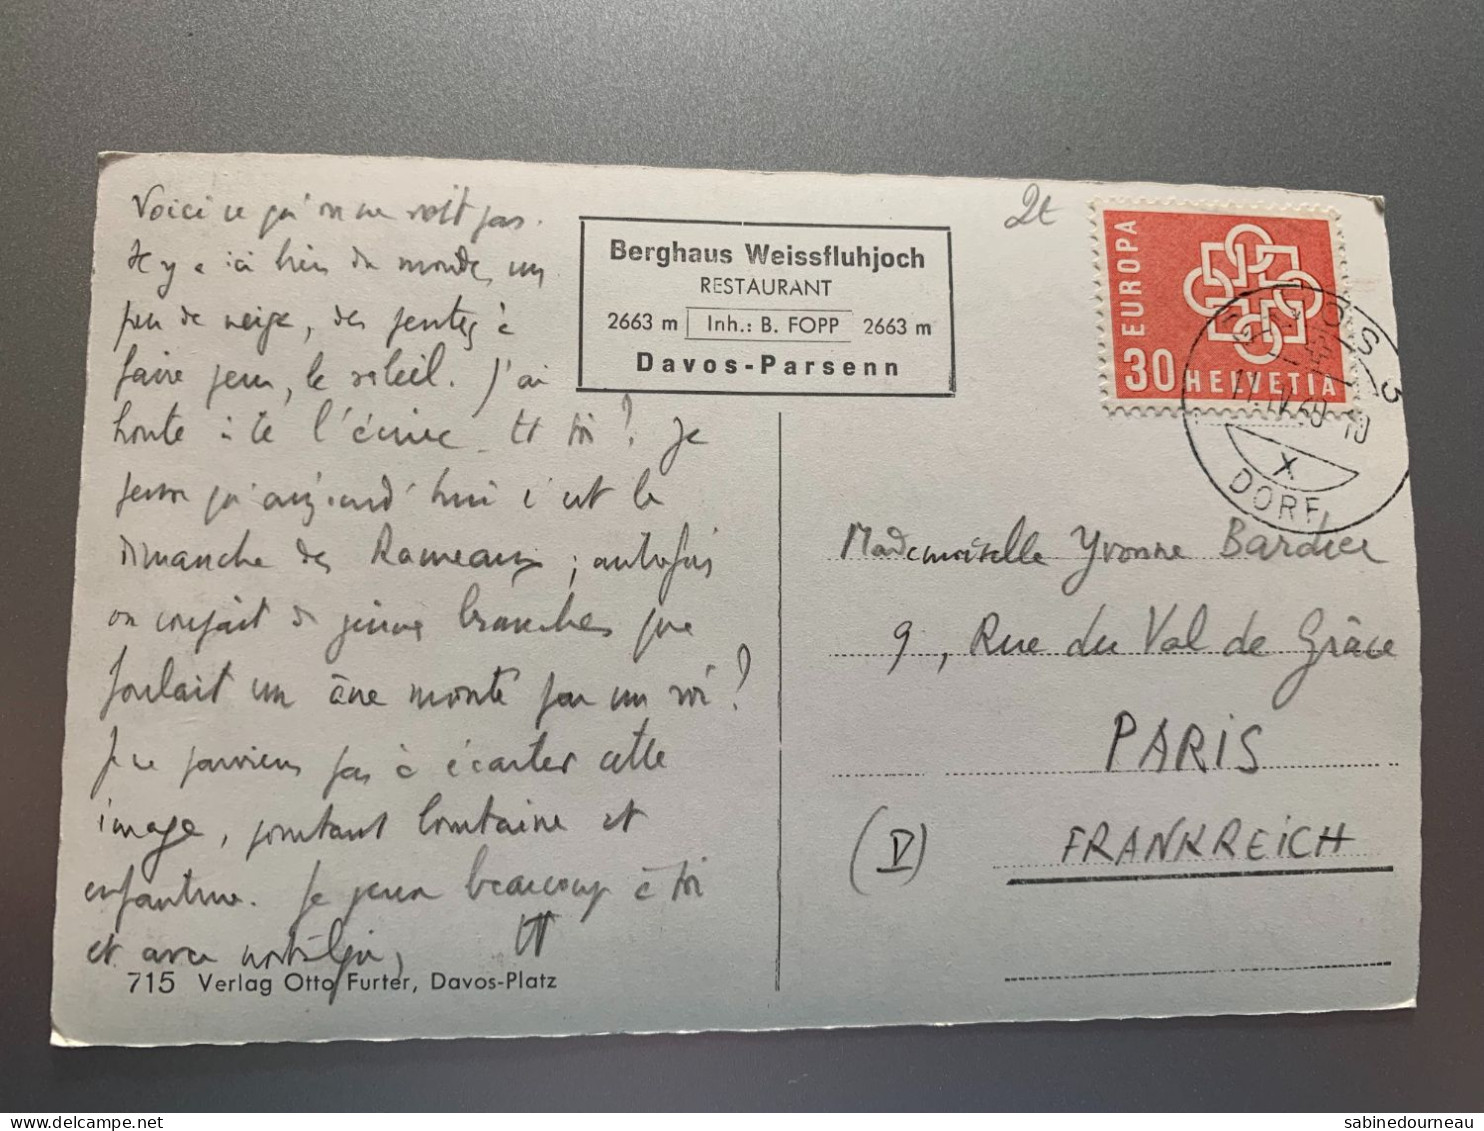 Voici ce qu'on ne voit pas.
Il y a ici bien du monde, un
peu de neige, des pentes à
faire peur, le soleil. J'ai
honte à te l'écrire. Et toi? Je
pense qu'aujourd'hui c'est le
dimanche des Rameaux ; autrefois
on coupait de jeunes branches que
foulait un âne monté par un roi?
Je ne parviens pas à écarter cette
image, pourtant lointaine et
enfantine. Je pense beaucoup à toi
et avec nostalgie,
715 Verlag Otto Furter, Davos-Platz
Berghaus Weissfluhjoch
RESTAURANT
2663 m Inh.: B. FOPP 2663 m
Davos-Parsenn
2t
EUROPA
30 HELVETIA
DAVOS 3
11.IV.60-10
X
DORF
Mademoiselle Yvonne Bardier
9, Rue du Val de Grâce
PARIS
(V)
FRANKREICH
sabinedourneau